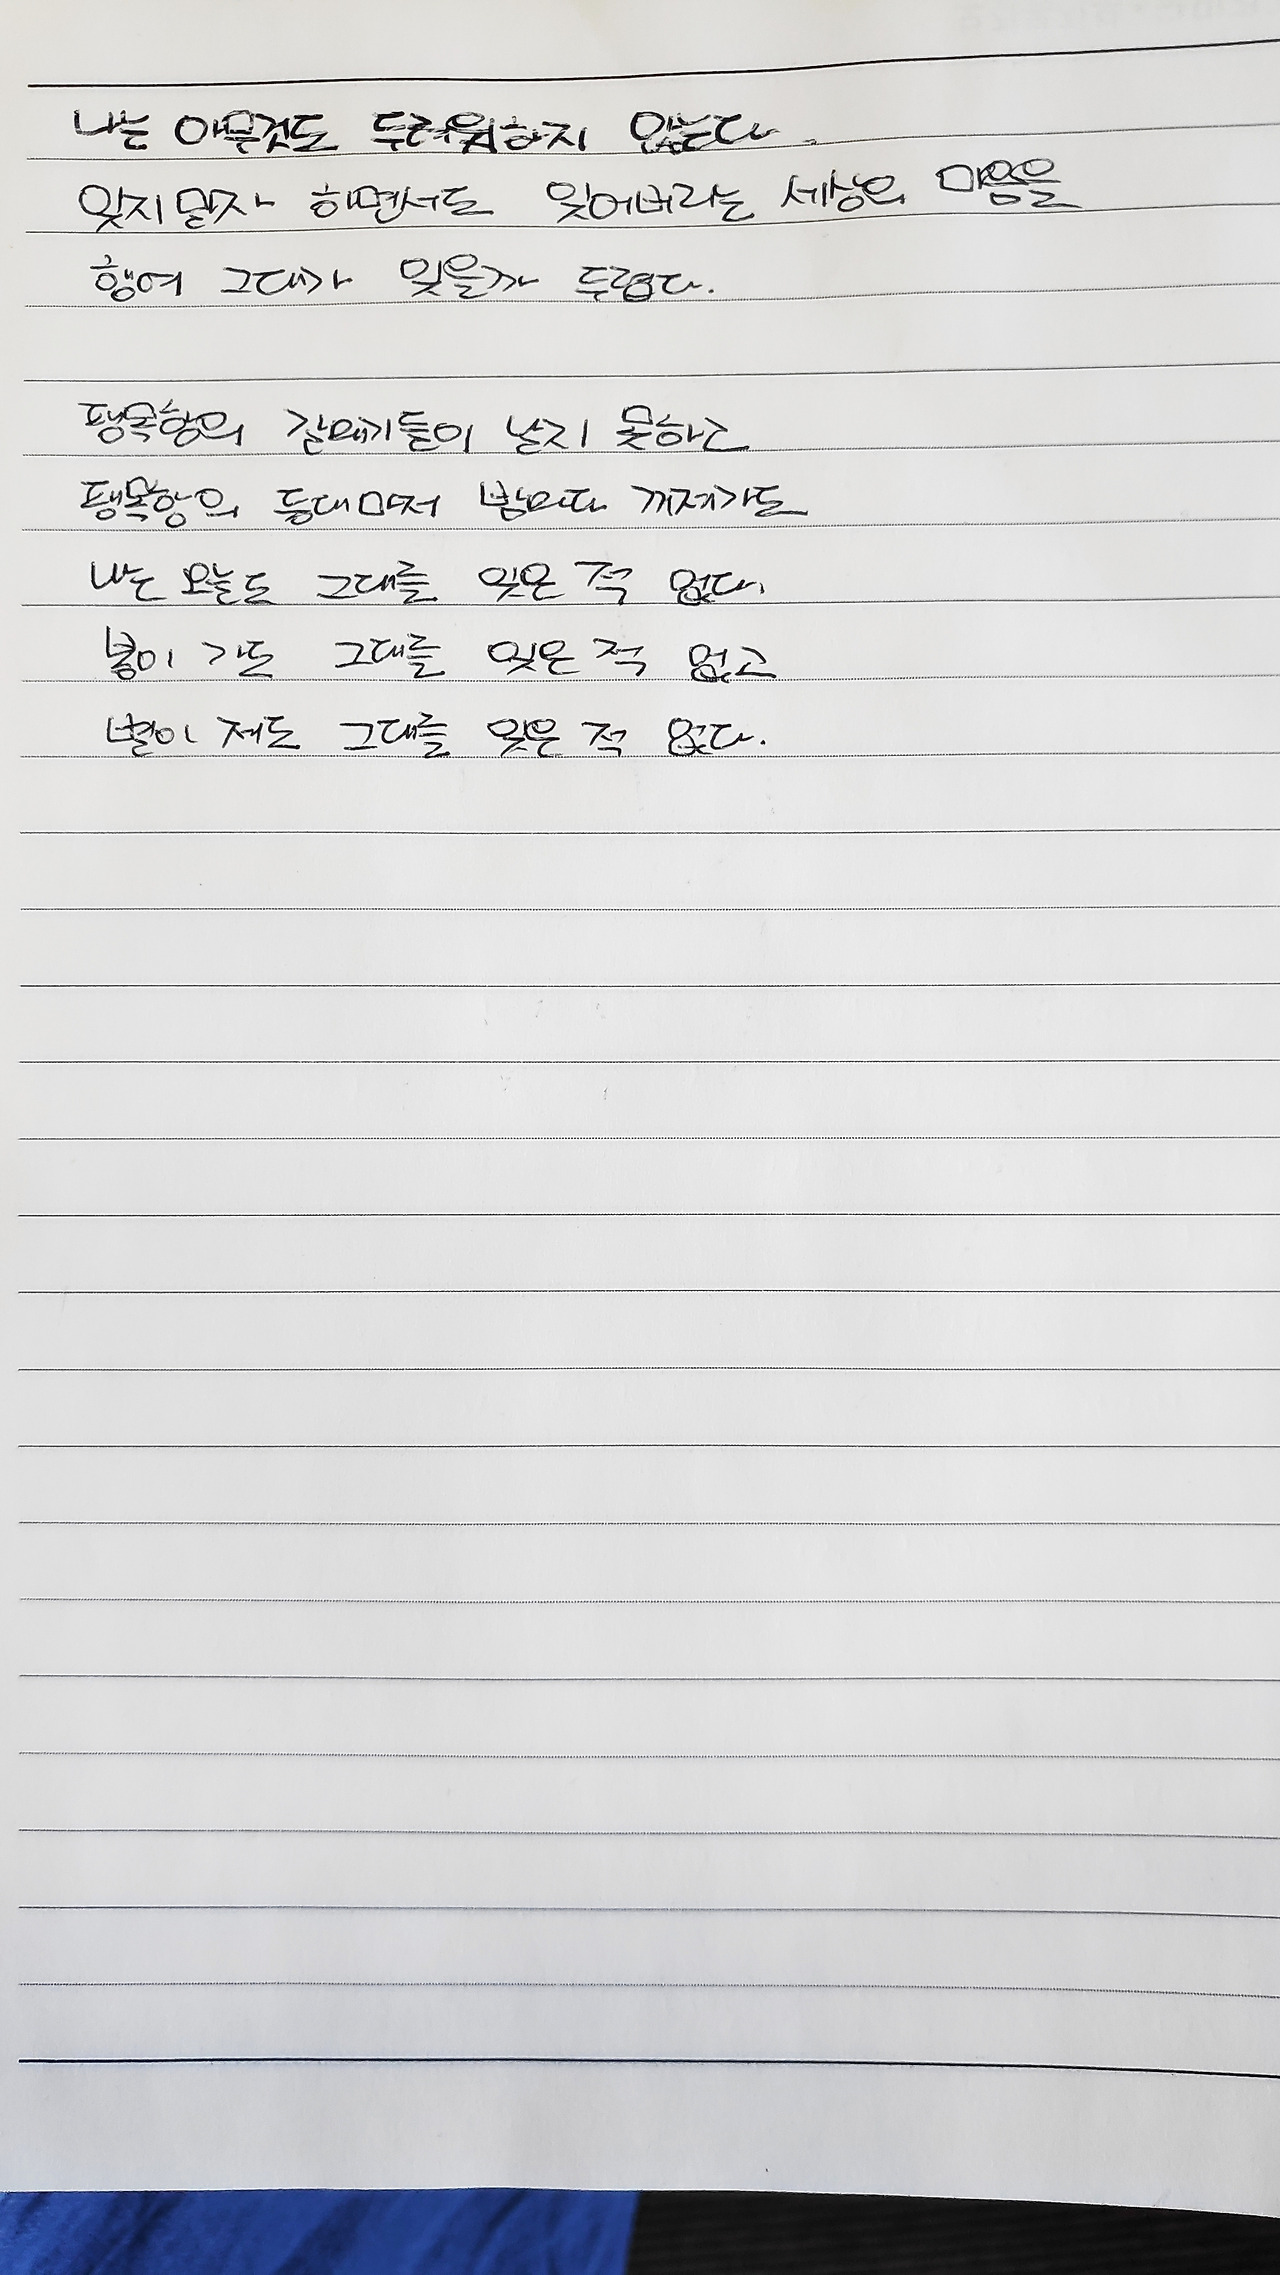 나는 아무것도 두려워하지 않는다.
잊지말자 하면서도 잊어버리는 세상의 마음을
행여 그대가 잊을까 두렵다.
팽목항의 갈매기들이 날지 못하고
팽목항의 등대마저 밤마다 꺼져가도
나는 오늘도 그대를 잊은 적 없다.
봄이 가도 그대를 잊은 적 없고
별이 져도 그대를 잊은 적 없다.